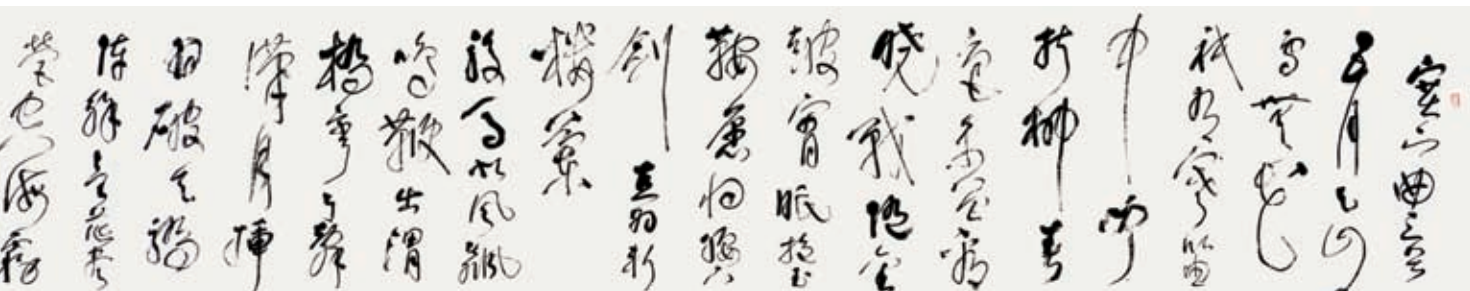 塞下曲三首
五月天山
雪無花
祇有寒笛
中聞
折柳春
色未曾看
曉戰隨金
鼓宵眠抱玉
鞍願將腰下
劍直為斬
樓蘭
駿馬似風飆
鳴鞭出渭
橋彎弓辭
漢月插
羽破天驕
陣解星芒盡
營空海霧